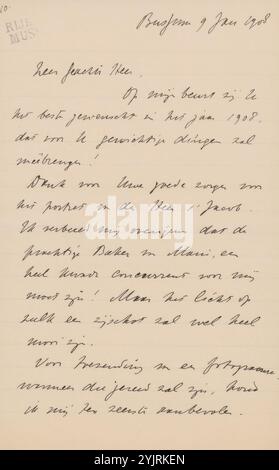 RIJK
MUS
Bussum 9 Jan 1908
Zeer Geachte Heer.
Op mijn beurt zij U
het beste gewenscht in het jaar 1908.
dat voor U gewichtige dingen zal
meebrengen!
Dank voor Uwe goede zorgen voor
het portret van de Heer Jacob.
Ik verbeeld mij overigens dat de
prachtige Baker van Maris, een
heel kwade concurrent voor mij
moet zijn! Maar het licht op
zulk een zijschot zal wel heel
mooi zijn.
Voor toezending van een fotogramme
wanneer die gereed zal zijn, houd
ik mij ten zeerste aanbevolen.
alamy
Image ID: 2YJRKEN
www.alamy.com